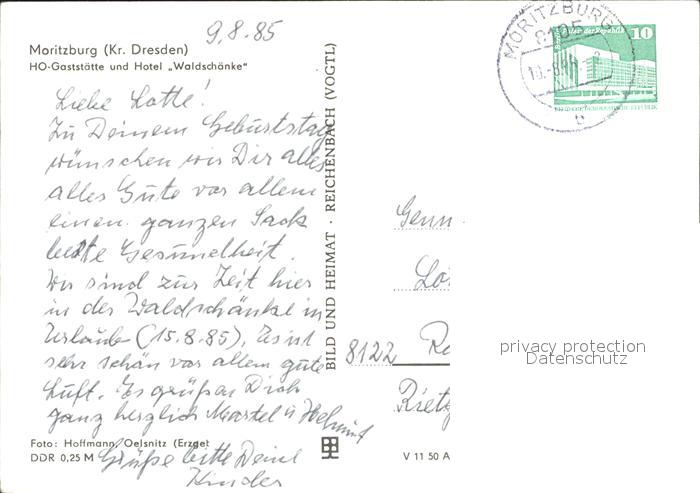 9.8.85
Moritzburg (Kr. Dresden)
HO-Gaststätte und Hotel „Waldschänke"
Liebe Lotte!
Zu Deinem Geburtstag
wünschen wir Dir alles
alles Gute vor allem
einen ganzen Sack
Gesundheit.
Wir sind zur Zeit hier
in der Waldschänke in
Urlaub (15.8.85). Es ist
sehr schön vor allem gute
Luft. Es grüßen Dich
ganz herzlich Martel u Helmut
Grüße bitte Deine
Kinder
Foto: Hoffmann, Oelsnitz (Erzgeb
DDR 0,25 M
BILD UND HEIMAT · REICHENBACH (VOGTL)
V 11 50 A
MORITZBURG
8105
b
Palast der Republik
10
8122
privacy protection
Datenschutz